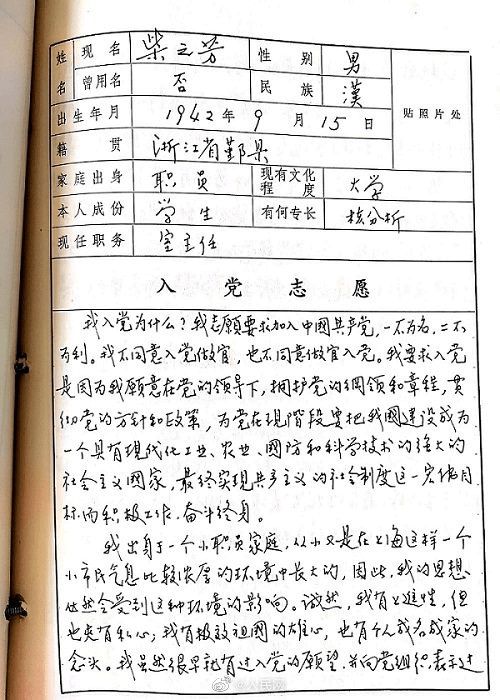 姓名 现名 柴之芳 性别 男
曾用名 否 民族 漢
出生年月 1942年9月15日 贴照片处
籍贯 浙江省鄞县
家庭出身 职员 现有文化程度 大学
本人成份 学生 有何专长 核分析
现任职务 室主任
入党志愿
我入党为什么？我志願要求加入中國共产党，一不为名，二不
为利。我不同意入党做官，也不同意做官入党。我要求入党
是因为我願意在党的领导下，拥护党的纲领和章程，贯
彻党的方针和政策，为党在现阶段要把我國建设成为
一个具有现代化工业、农业、國防和科学技术的强大的
社会主义國家，最终实现共产主义的社会制度这一宏伟目
标而积极工作，奋斗终身。
我出身于一个小职员家庭，从小又是在上海这样一个
小市民气息比较浓厚的环境中长大的，因此，我的思想
必然会受到这种环境的影响。诚然，我有上進性，但
也夹有私心；我有报效祖國的雄心，也有个人成名成家的
念头。我虽然很早就有过入党的願望，并向党组织表示过
@公民网